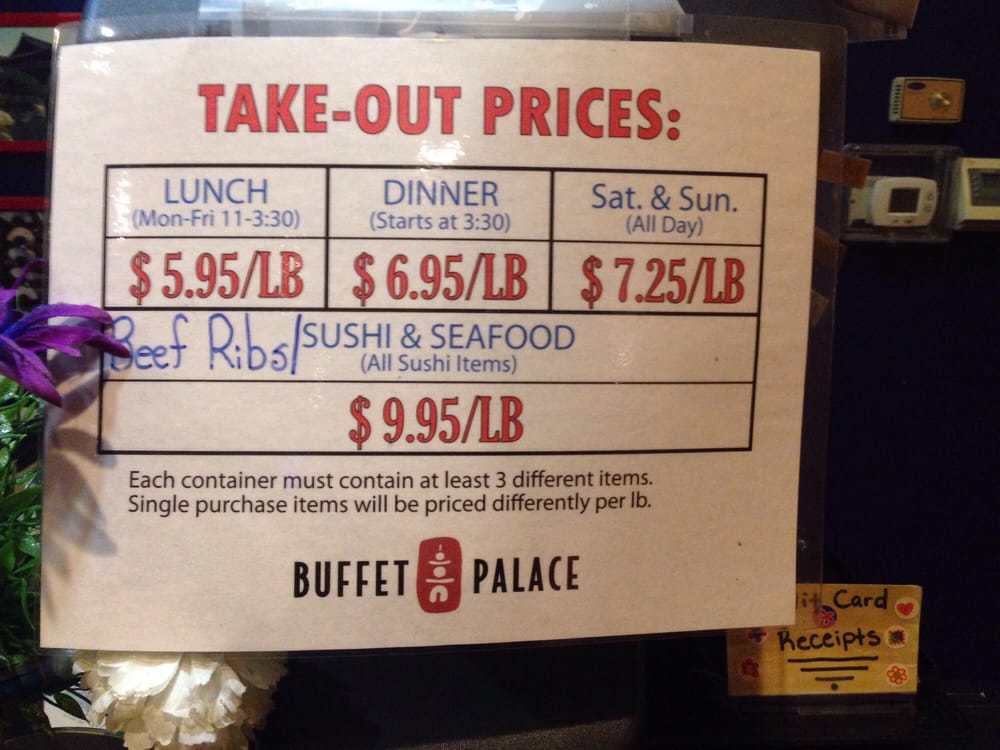 TAKE-OUT PRICES:
LUNCH
(Mon-Fri 11-3:30)
DINNER
(Starts at 3:30)
Sat. & Sun.
(All Day)
$ 5.95/LB
$ 6.95/LB
$ 7.25/LB
Beef Ribs/ SUSHI & SEAFOOD
(All Sushi Items)
$ 9.95/LB
Each container must contain at least 3 different items.
Single purchase items will be priced differently per lb.
BUFFET PALACE
Card
Receipts